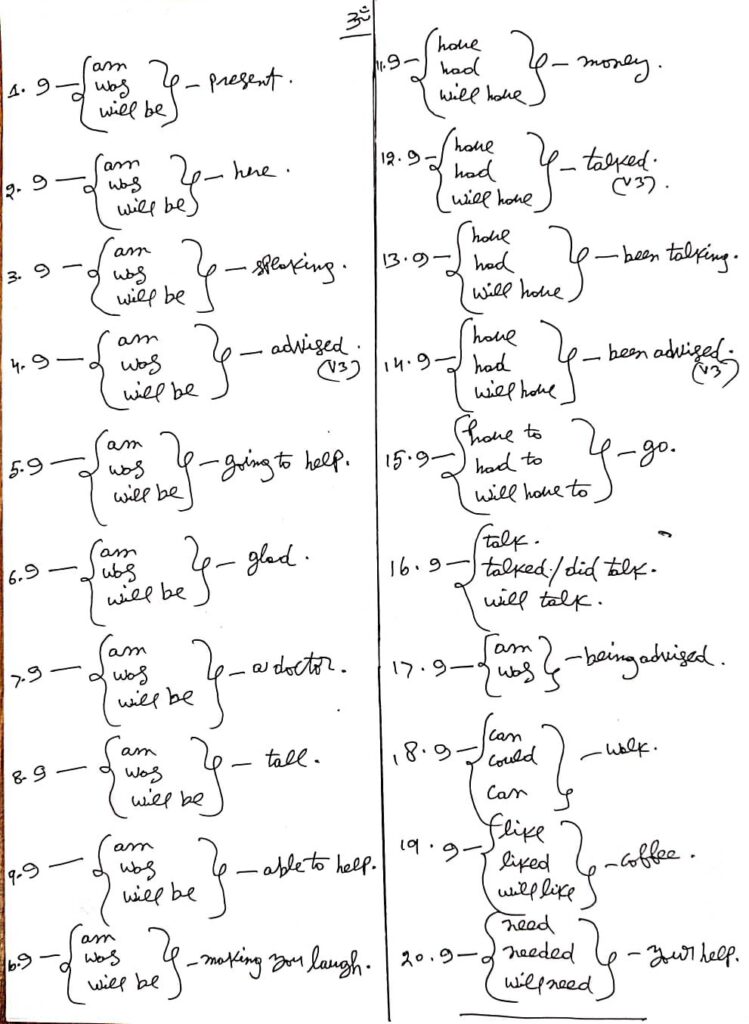 ॐ
am
1. I — { was } — present.
will be
am
2. I — { was } — here.
will be
am
3. I — { was } — speaking.
will be
am
4. I — { was } — advised.
will be (V3)
am
5. I — { was } — going to help.
will be
am
6. I — { was } — glad.
will be
am
7. I — { was } — a doctor.
will be
am
8. I — { was } — tall.
will be
am
9. I — { was } — able to help.
will be
am
10. I — { was } — making you laugh.
will be
have
11. I — { had } — money.
will have
have
12. I — { had } — talked.
will have (V3).
have
13. I — { had } — been talking.
will have
have
14. I — { had } — been advised.
will have (V3)
have to
15. I — { had to } — go.
will have to
talk.
16. I — { talked / did talk.
will talk.
am
17. I — { was } — being advised.
can
18. I — { could } — walk.
can
like
19. I — { liked } — coffee.
will like
need
20. I — { needed } — your help.
will need